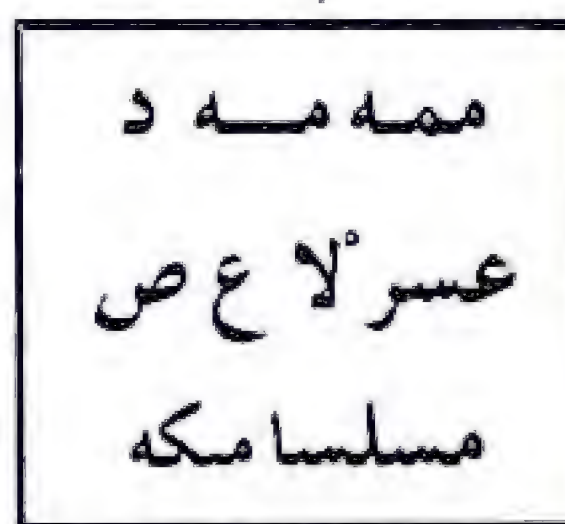 ممه مـــه د
عسر لا ع ص
مسلسا مكه